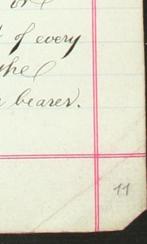 of every
the
bearer.
11